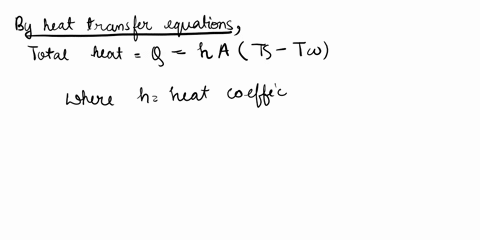 By heat transfer equations,
Total heat = Q = hA (Ts - Tω)
where h= heat coeffic